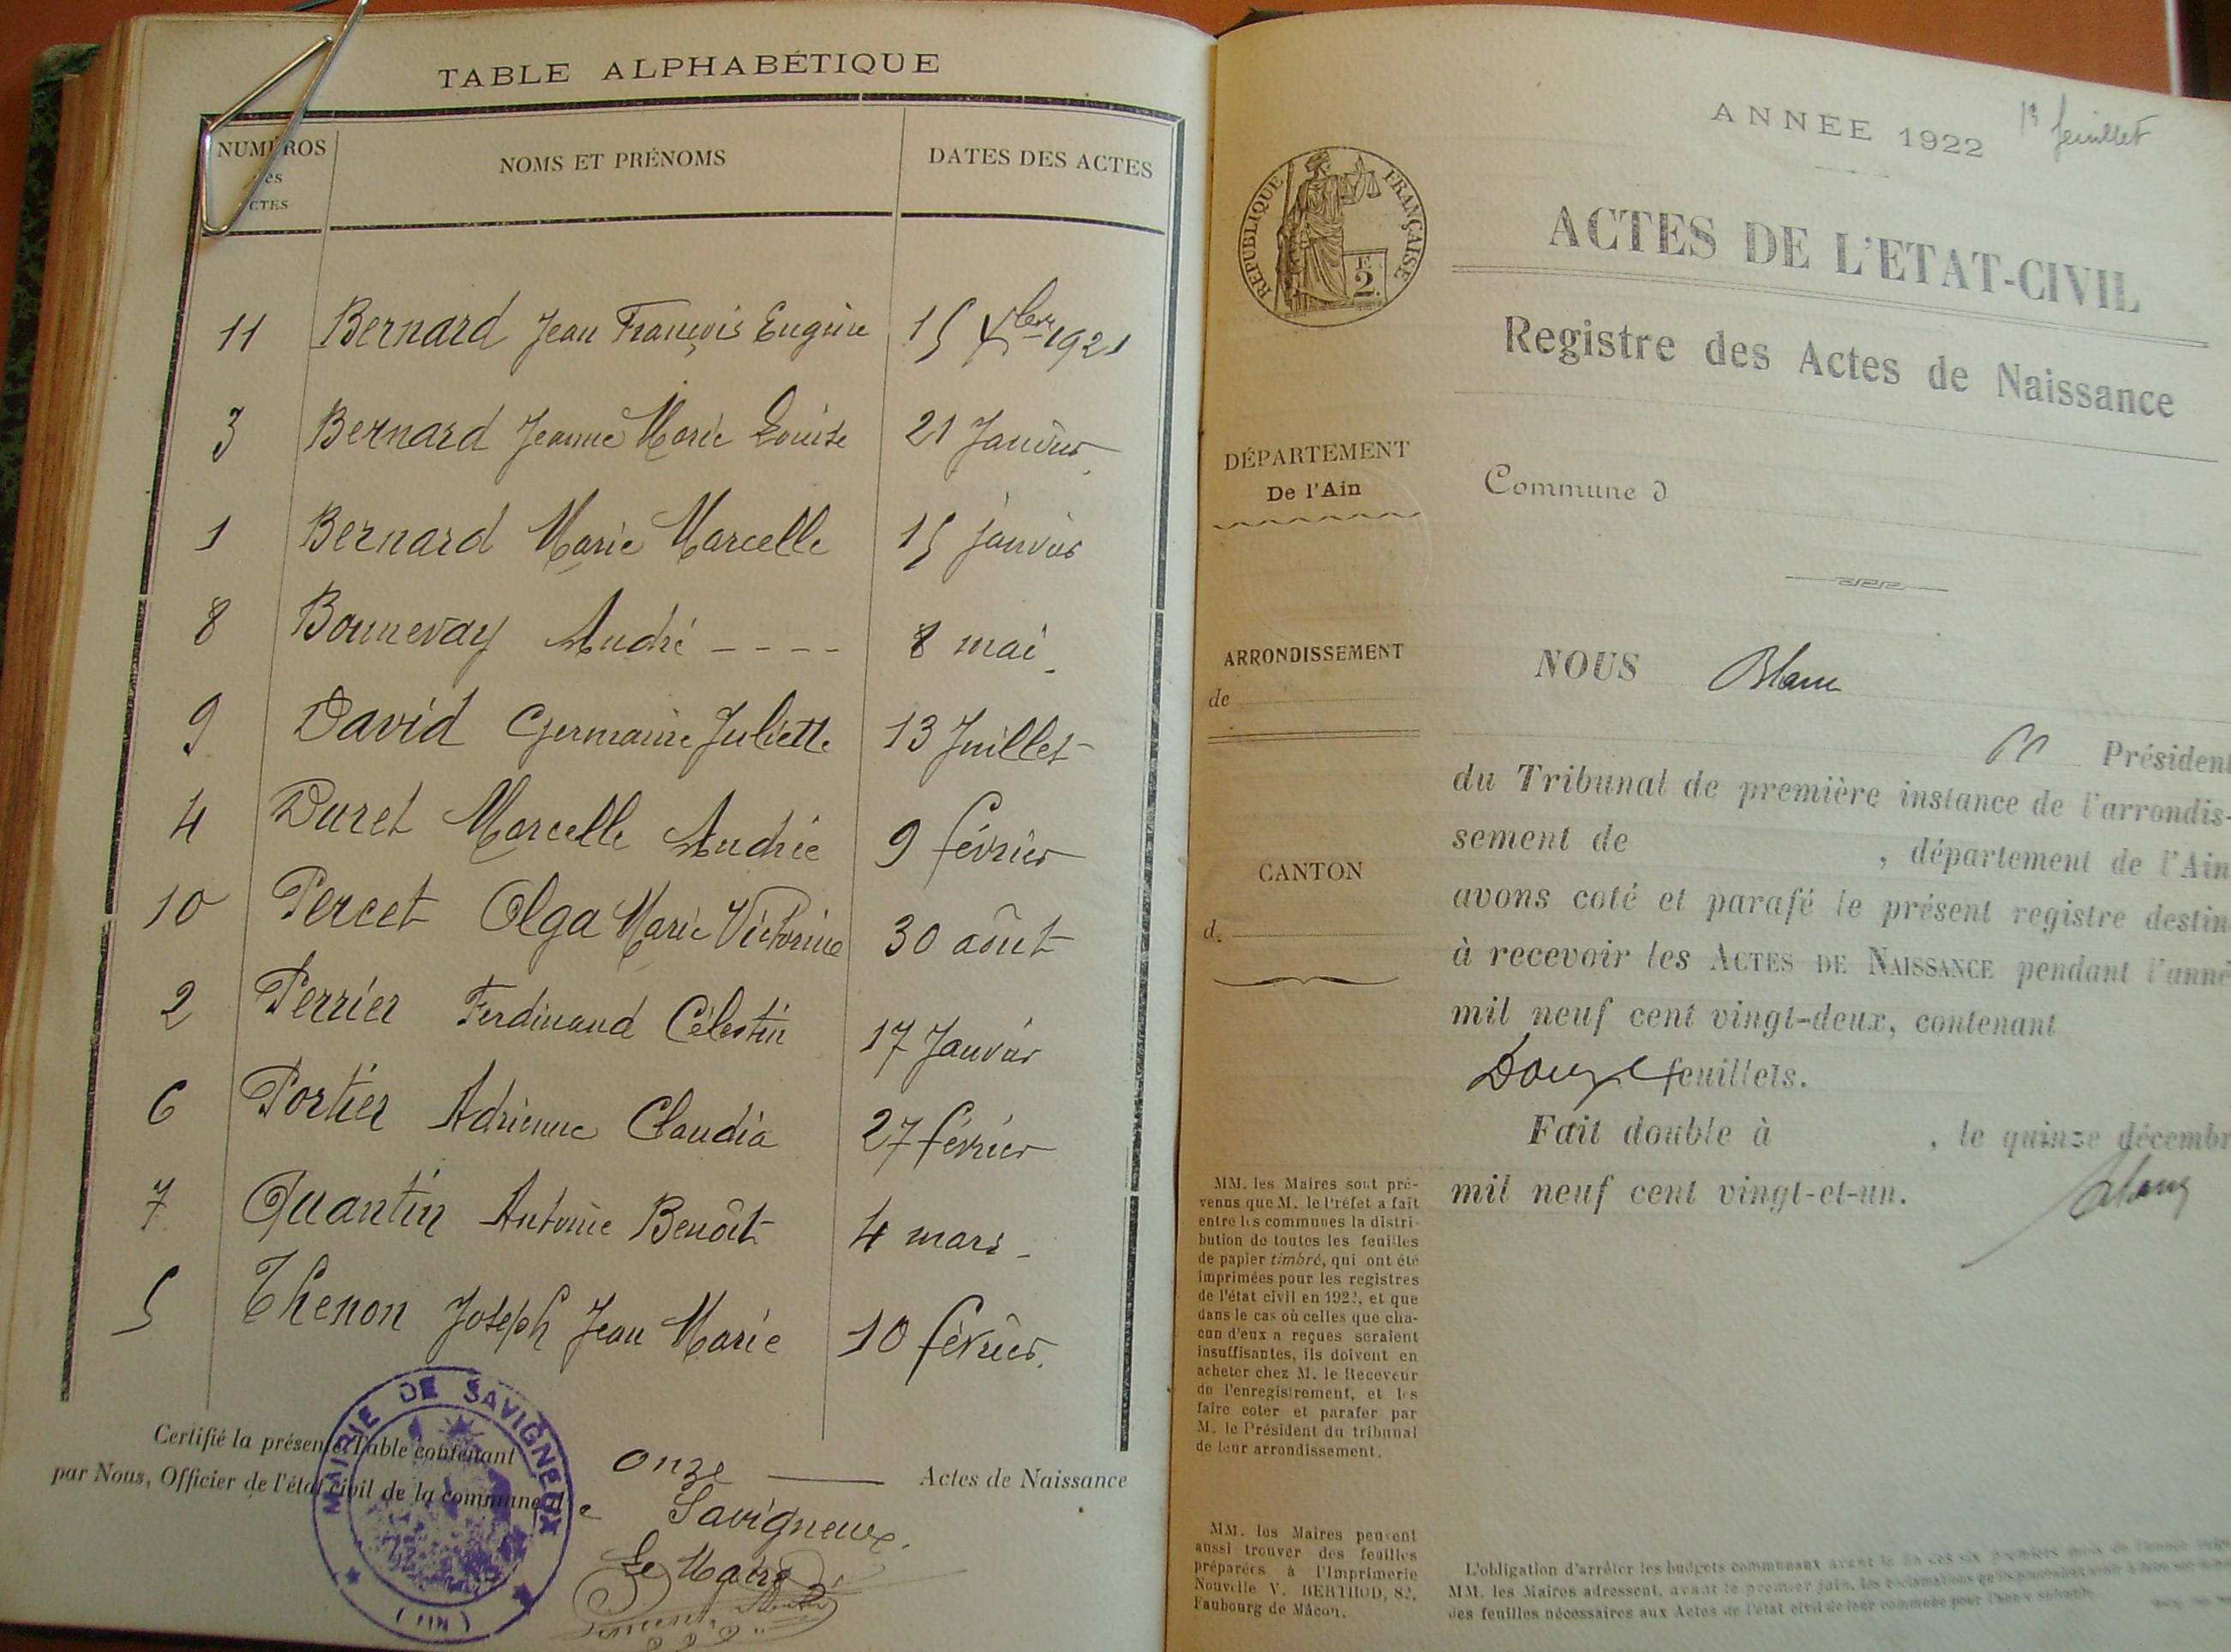 TABLE ALPHABÉTIQUE
NUMÉROS
des
ACTES
NOMS ET PRÉNOMS
DATES DES ACTES
11 Bernard Jean François Eugène 15 Xbre 1921
3 Bernard Jeanne Marie Louise 21 Janvier
1 Bernard Marie Marcelle 15 janvier
8 Bonnevay André - - - - 8 mai
9 David Germaine Juliette 13 Juillet
4 Duret Marcelle Andrée 9 février
10 Percet Olga Marie Victorine 30 août
2 Perrier Ferdinand Célestin 17 Janvier
6 Portier Adrienne Claudia 27 février
7 Quantin Antoine Benoît 4 mars
5 Thenon Joseph Jean Marie 10 février.
Certifié la présente Table contenant onze Actes de Naissance
par Nous, Officier de l'état civil de la commune de Savigneux.
Le Maire
MAIRIE DE SAVIGNEUX
(AIN)
ANNEE 1922
feuillet
REPUBLIQUE FRANÇAISE
2
ACTES DE L'ETAT-CIVIL
Registre des Actes de Naissance
DÉPARTEMENT
De l'Ain
Commune d
ARRONDISSEMENT
de
CANTON
d.
NOUS Blanc
Président
du Tribunal de première instance de l'arrondis-
sement de , département de l'Ain
avons coté et parafé le présent registre destin
à recevoir les ACTES DE NAISSANCE pendant l'anné
mil neuf cent vingt-deux, contenant
Douze feuillets.
Fait double à , le quinze décembr
mil neuf cent vingt-et-un.
MM. les Maires sont pré-
venus que M. le Préfet a fait
entre les communes la distri-
bution de toutes les feuilles
de papier timbré, qui ont été
imprimées pour les registres
de l'état civil en 1922, et que
dans le cas où celles que cha-
cun d'eux a reçues seraient
insuffisantes, ils doivent en
acheter chez M. le Receveur
de l'enregistrement, et les
faire coter et parafer par
M. le Président du tribunal
de leur arrondissement.
MM. les Maires peuvent
aussi trouver des feuilles
préparées à l'Imprimerie
Nouvelle V. BERTHOD, 82,
Faubourg de Mâcon.
L'obligation d'arrêter les budgets communaux avant la
MM. les Maires adressent, avant le premier juin, les réclamations
des feuilles nécessaires aux Actes de l'état civil de leur commune pour l'année suivante.